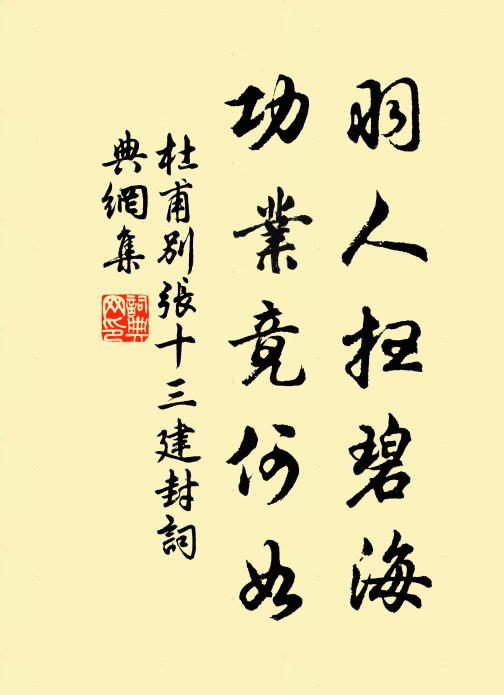 羽人掃碧海
功業竟何如
杜甫別張十三建封詞
典網集
詞典
网印